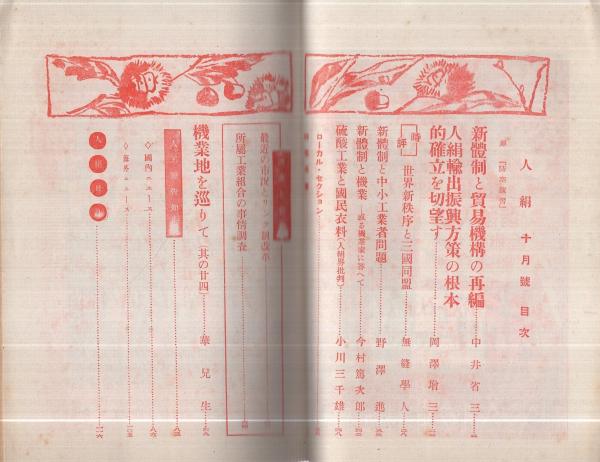 人絹 十月號 目次
新體制と貿易機構の再編 中井省三
人絹輸出振興方策の根本的確立を切望す 岡澤増三
時評
世界新秩序と三國同盟 無縫學人
新體制と中小工業者問題 野澤進
新體制と機業 或る機業家に答へて 今村篤次郎
硫酸工業と國民衣料(人絹界批判) 小川三千雄
ローカル・セクション
最近の市況とリンク制改革
所屬工業組合の事情調査
機業地を巡りて(其の廿四) 華兒生
◇國内ニュース
◇海外ニュース